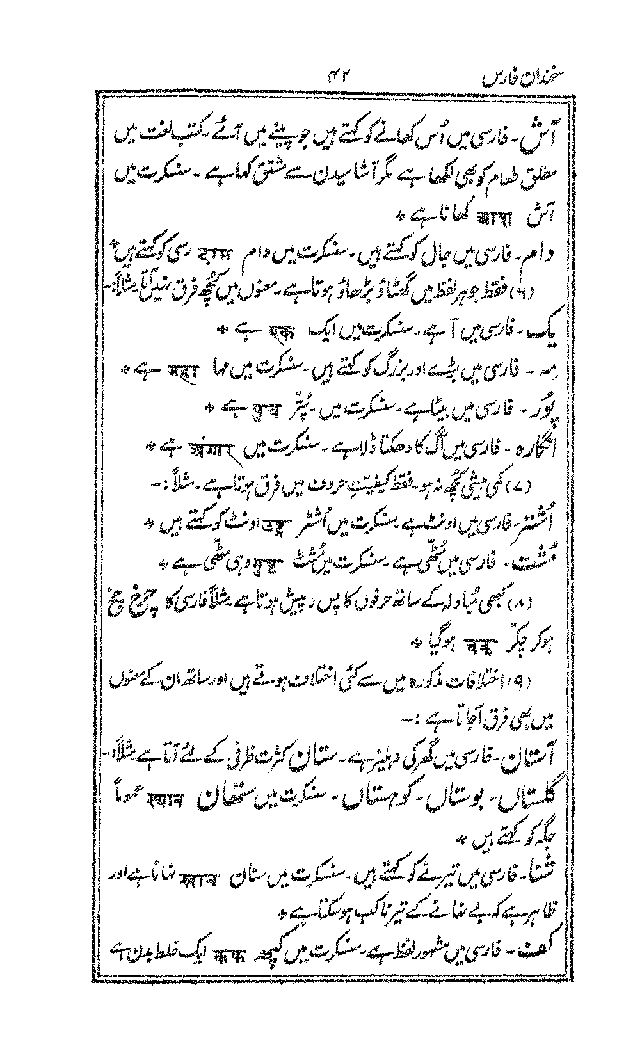 سخندان فارس ۴۲
آش - فارسی میں اُس کھانے کو کہتے ہیں جو پینے میں آئے۔ کتب لغت میں
مطلق طعام کو بھی لکھا ہے مگر آشامیدن سے مشتق کہا ہے - سنسکرت میں
آش आश کھانا ہے *
دام - فارسی میں جال کو کہتے ہیں - سنسکرت میں دام दाम رسی کو کہتے ہیں *
(۶) فقط جوہر لفظ میں گھٹاؤ بڑھاؤ ہوتا ہے - معنوں میں کچھ فرق نہیں آتا مثلاً:-
یک - فارسی میں آ ہے - سنسکرت میں ایک एक ہے *
مِہ - فارسی میں بڑے اور بزرگ کو کہتے ہیں - سنسکرت میں مہا महा ہے *
پُور - فارسی میں بیٹا ہے - سنسکرت میں - پُتّر पुत्र ہے *
انگارہ - فارسی میں آگ کا دھکتا ڈلا ہے - سنسکرت میں अंगार ہے *
(۷) کمی بیشی کچھ نہ ہو - فقط کیفیتِ حروف میں فرق ہوتا ہے - مثلاً :-
اُشتر - فارسی میں اونٹ ہے سنسکرت میں اُشٹر उष्ट्र اونٹ کو کہتے ہیں *
مُشت - فارسی میں مُٹھی ہے - سنسکرت میں مُشٹ मुष्ट وہی مُٹھی ہے *
(۸) کبھی مُبادلہ کے ساتھ حرفوں کا پس و پیش ہوتا ہے مثلاً فارسی کا چرخ چخر
ہو کر چکّر चक्र ہو گیا *
(۹) اختلافات مذکورہ میں سے کئی اختلاف ہوتے ہیں اور ساتھ ان کے معنوں
میں بھی فرق آجاتا ہے :-
آستان - فارسی میں گھر کی دہلیز ہے - ستان کثرت ظرفی کے لئے آتا ہے مثلاً:-
گلستاں - بوستاں - کوہستاں - سنسکرت میں ستھان स्थान عموماً
جگہ کو کہتے ہیں *
شنا - فارسی میں تیرنے کو کہتے ہیں - سنسکرت میں سنان स्नान نہانا ہے اور
ظاہر ہے کہ بے نہانے کے تیرنا کب ہو سکتا ہے *
کف - فارسی میں مشہور لفظ ہے - سنسکرت میں कफ ایک خلط بدن ہے